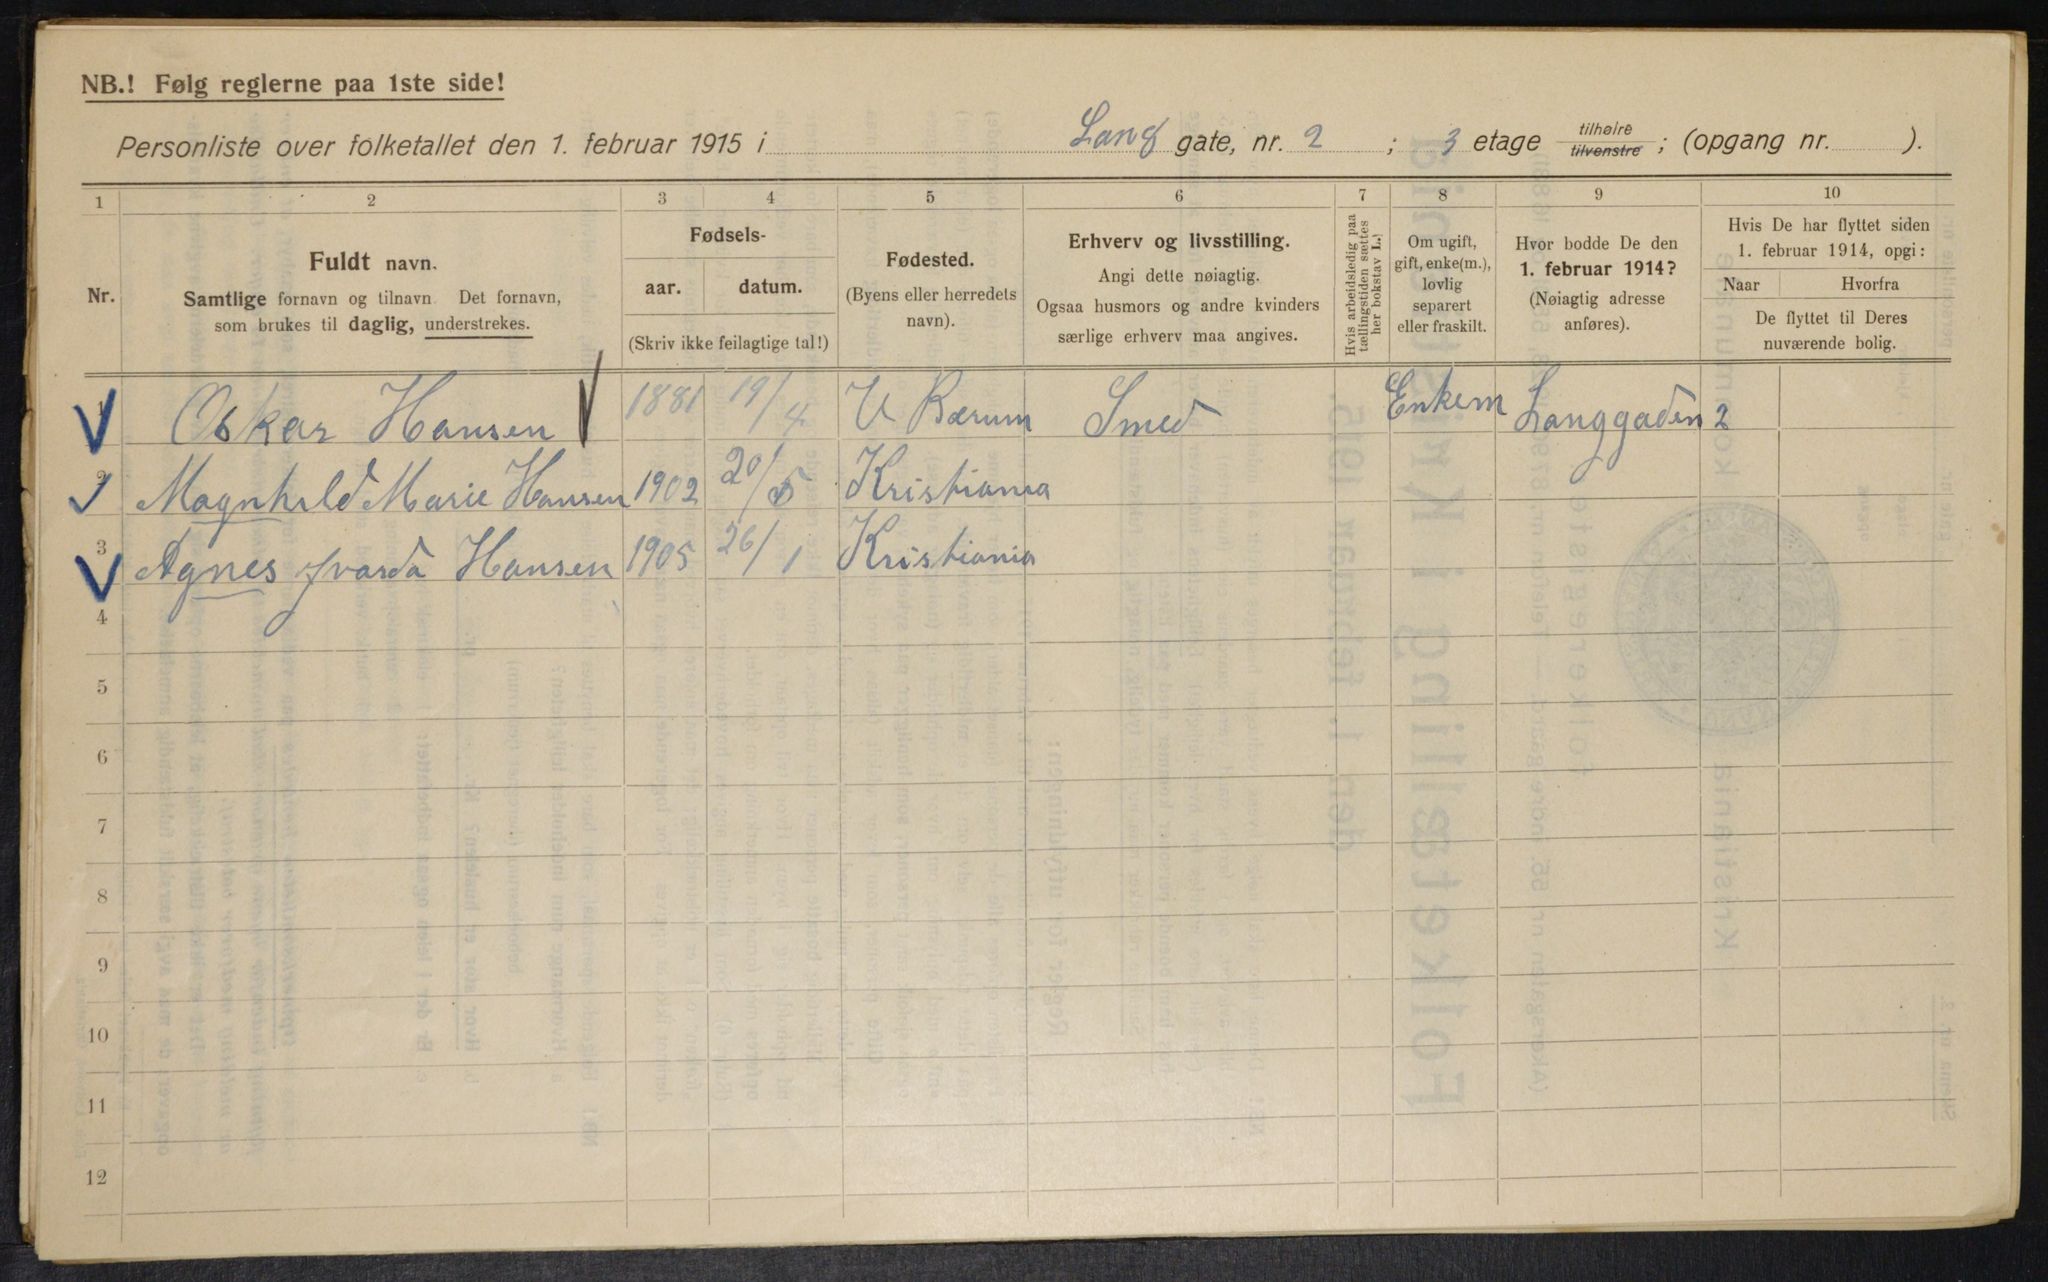 NB.! Følg reglerne paa 1ste side!
Personliste over folketallet den 1. februar 1915 i Lang gate, nr. 2 ; 3 etage tilhøire tilvenstre ; (opgang nr. ).
1 2 3 4 5 6 7 8 9 10
Nr.
Fuldt navn.
Samtlige fornavn og tilnavn Det fornavn,
som brukes til daglig, understrekes.
Fødsels-
aar. datum.
(Skriv ikke feilagtige tal!)
Fødested.
(Byens eller herredets
navn).
Erhverv og livsstilling.
Angi dette nøiagtig.
Ogsaa husmors og andre kvinders
særlige erhverv maa angives.
Hvis arbeidsledig paa
tællingstiden sættes
her bokstav L.!
Om ugift,
gift, enke(m.),
lovlig
separert
eller fraskilt.
Hvor bodde De den
1. februar 1914?
(Nøiagtig adresse
anføres).
Hvis De har flyttet siden
1. februar 1914, opgi:
Naar Hvorfra
De flyttet til Deres
nuværende bolig.
1 Oskar Hansen 1881 19/4 V Bærum Smed Enkem Langgaden 2
2 Magnhild Marie Hansen 1902 20/5 Kristiania
3 Agnes Hansen 1905 26/1 Kristiania
4
5
6
7
8
9
10
11
12